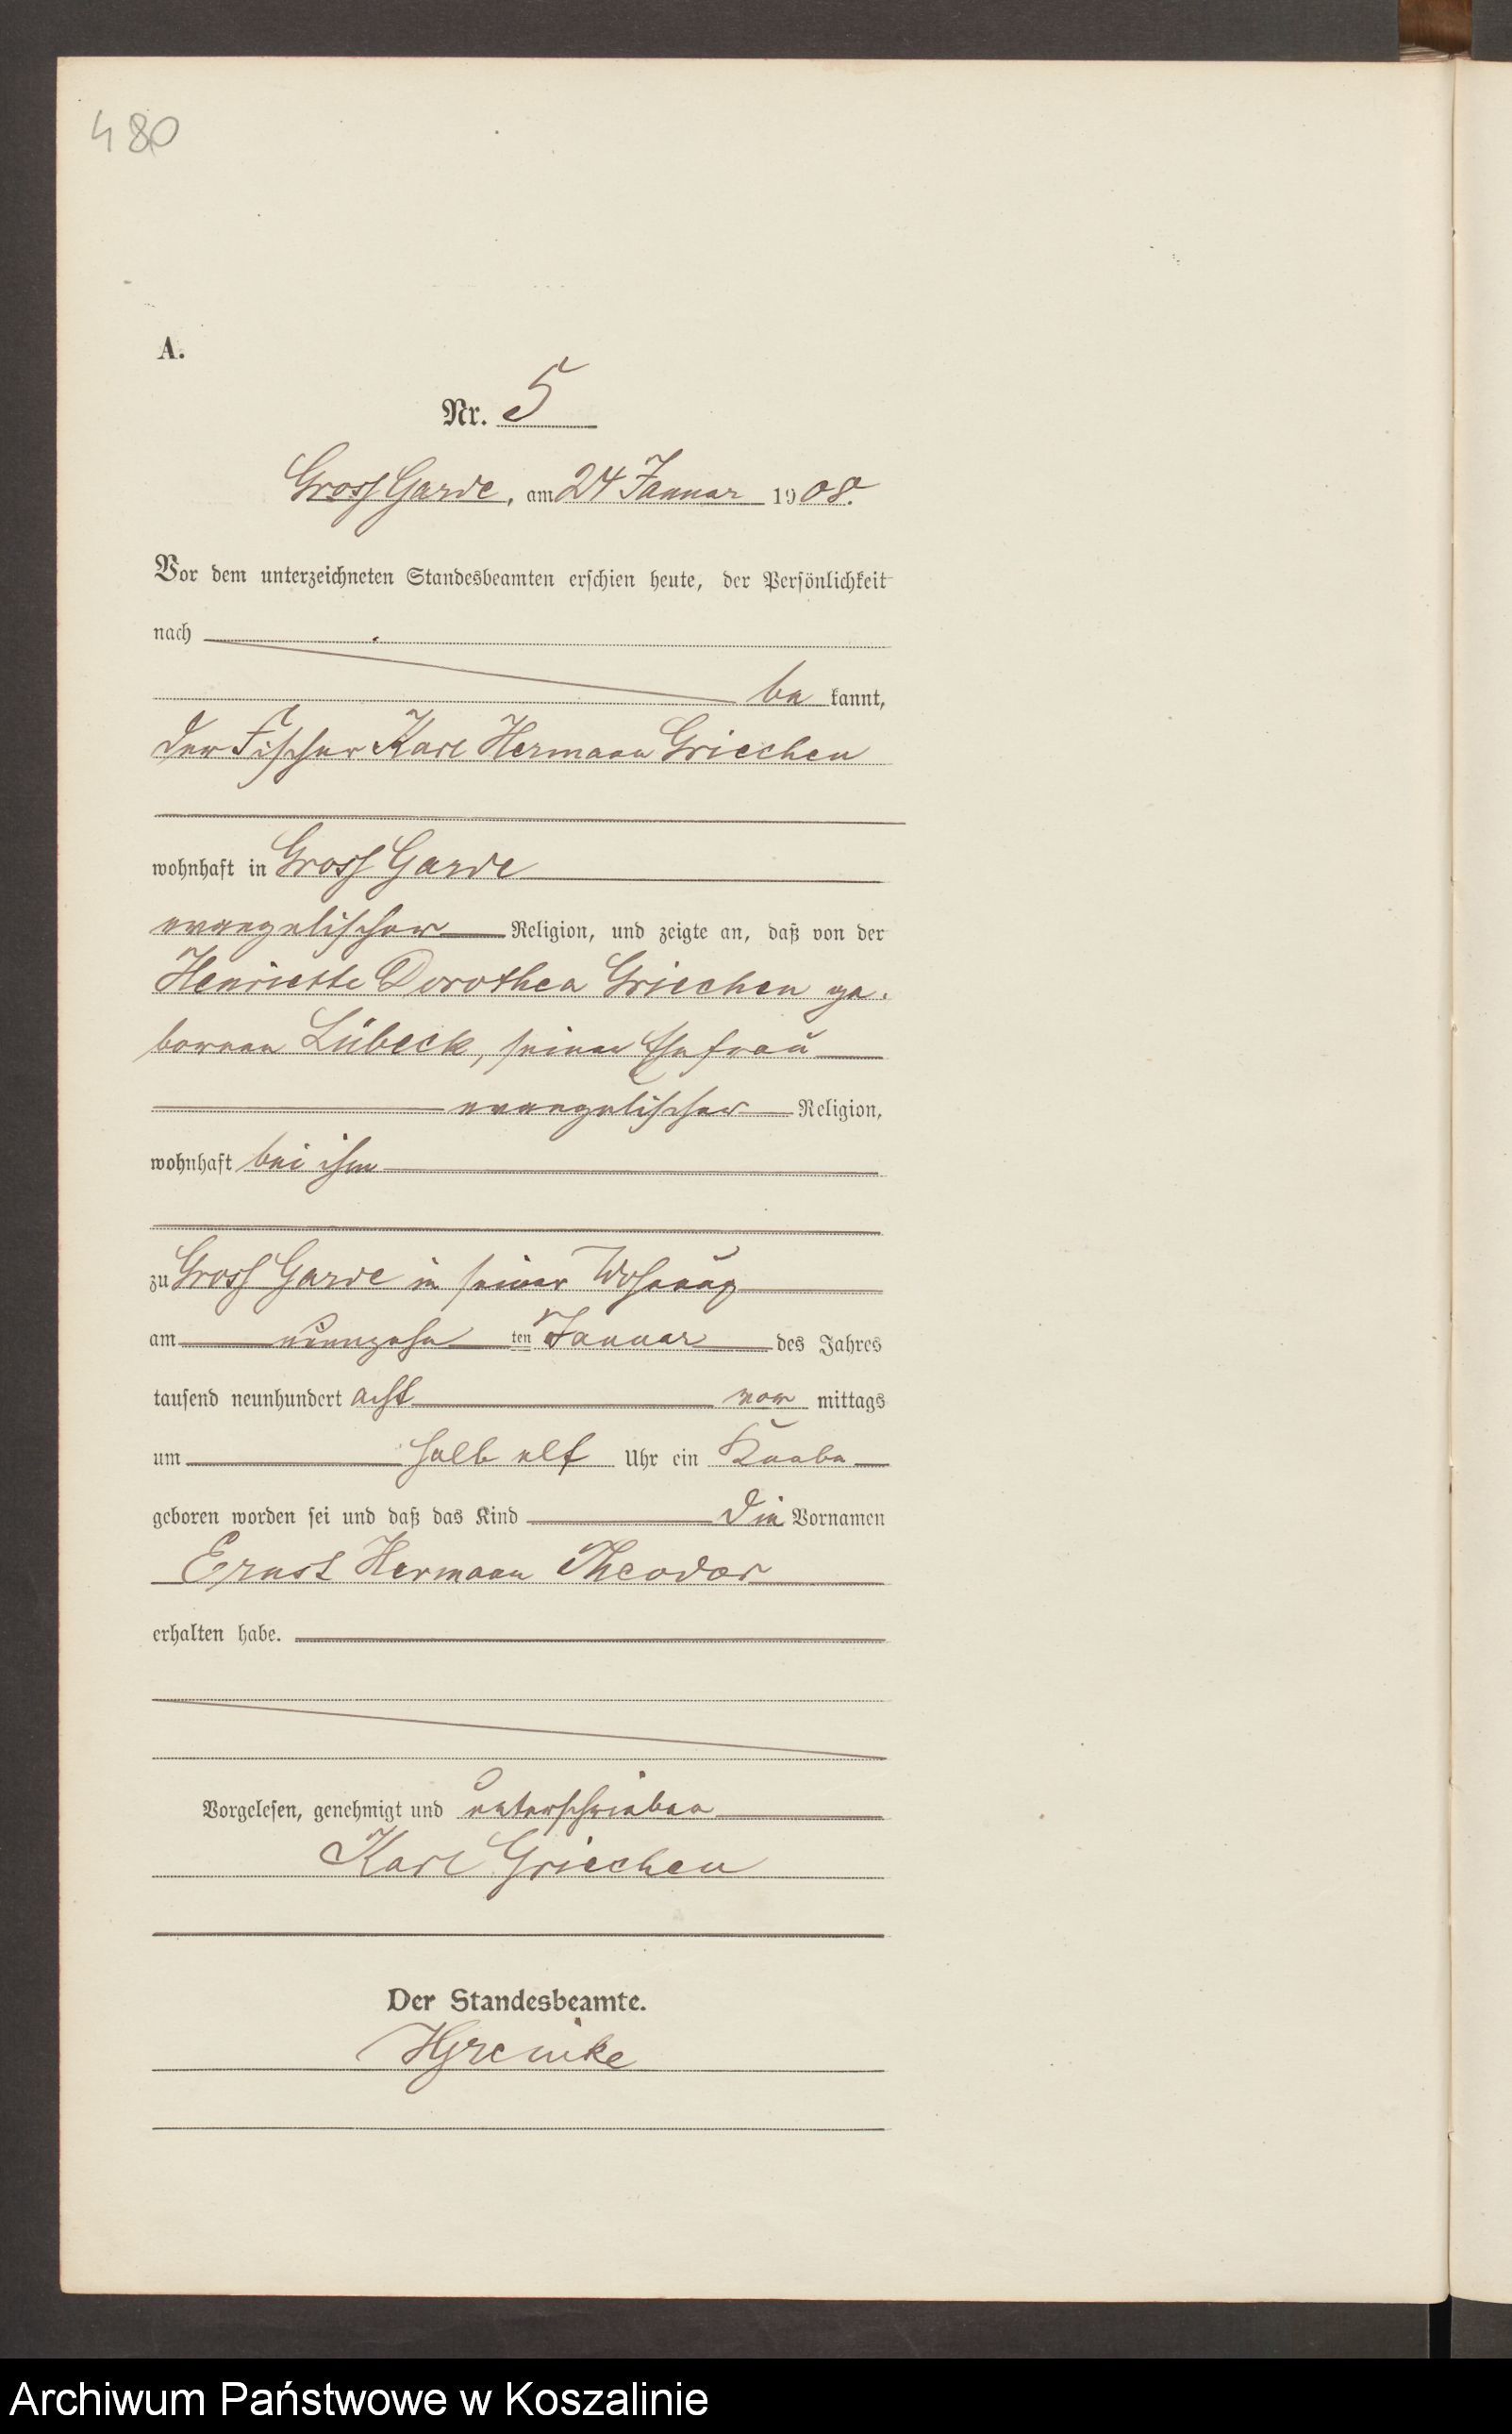 480
A.
Nr. 5
Gross Garde, am 24 Januar 1908.
Vor dem unterzeichneten Standesbeamten erschien heute, der Persönlichkeit
nach
be kannt,
der Fischer Karl Hermann Griechen
wohnhaft in Gross Garde
evangelischer Religion, und zeigte an, daß von der
Henriette Dorothea Griechen ge-
borenen Lübeck, seiner Ehefrau
evangelischer Religion,
wohnhaft bei ihm
zu Gross Garde in seiner Wohnung
am neunzehn ten Januar des Jahres
tausend neunhundert acht vor mittags
um halb elf Uhr ein Knabe
geboren worden sei und daß das Kind die Vornamen
Ernst Hermann Theodor
erhalten habe.
Vorgelesen, genehmigt und unterschrieben
Karl Griechen
Der Standesbeamte.
Archiwum Państwowe w Koszalinie